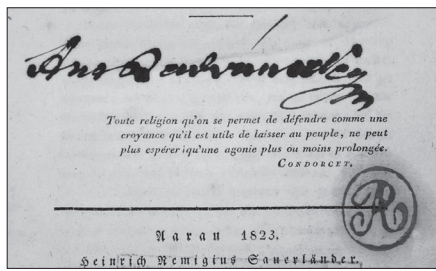 Toute religion qu'on se permet de défendre comme une
croyance qu'il est utile de laisser au peuple, ne peut
plus espérer qu'une agonie plus ou moins prolongée.
CONDORCET.
R
Aarau 1823.
Heinrich Remigius Sauerländer.